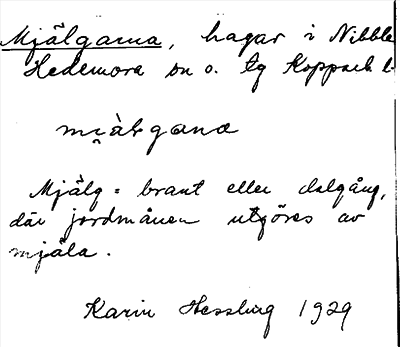 Mjälgarna, hagar i Nibble
Hedemora sn o. tg Kopparb. l.
mi̯àlgana
Mjälg = brant eller dalgång,
där jordmånen utgöres av
mjäla.
Karin Hessling 1929